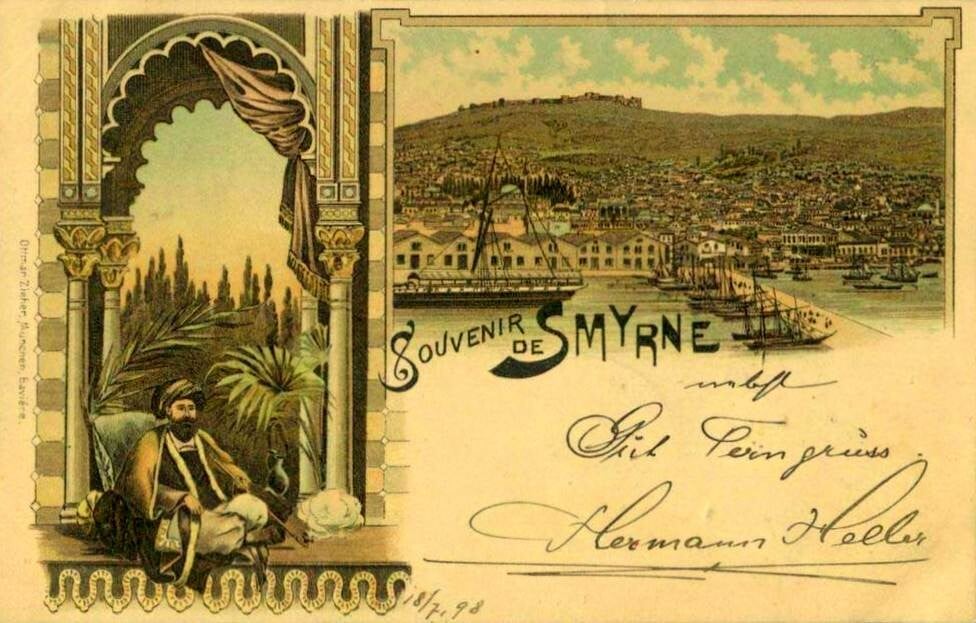 Ottmar Zieher, München, Bavière.
SOUVENIR DE SMYRNE
nebst
Gut Ferngruss.
Hermann Heller
18/7.98